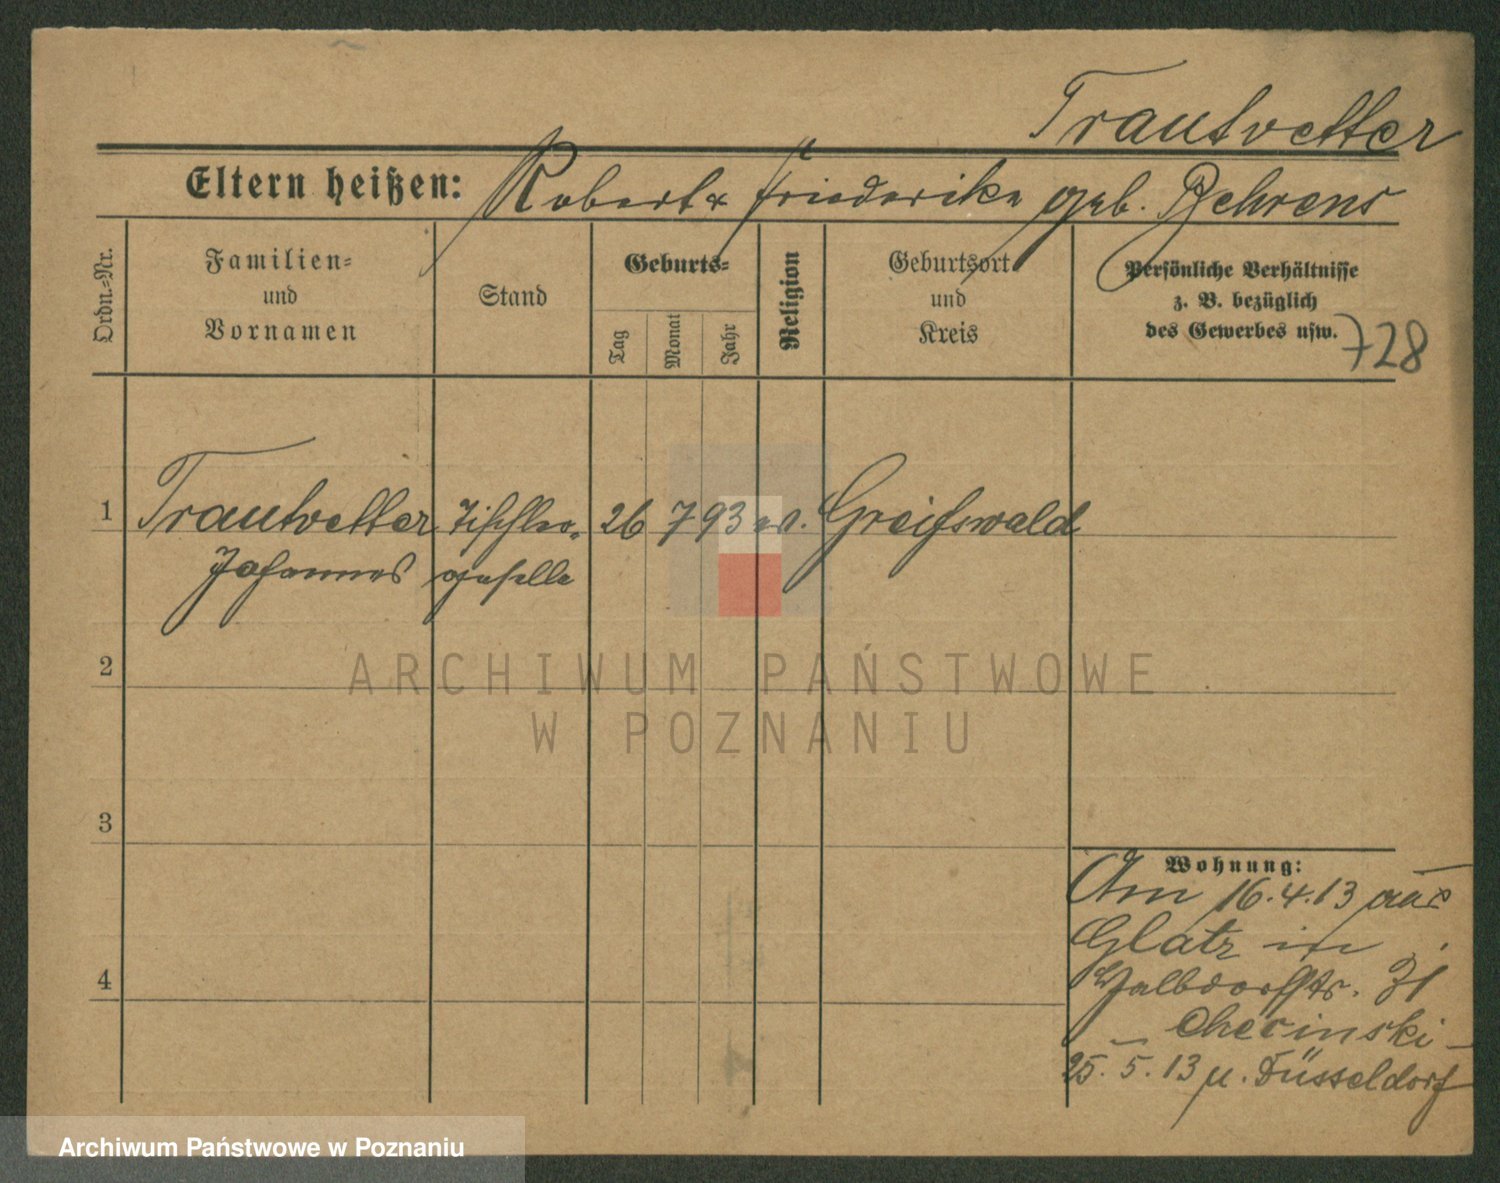 Trautvetter
Eltern heißen: Robert & Friederike geb. Behrens
Ordn.=Nr.
Familien=
und
Vornamen
Stand
Geburts=
Tag
Monat
Jahr
Religion
Geburtsort
und
Kreis
Persönliche Verhältnisse
z. B. bezüglich
des Gewerbes usw.
728
1 Trautvetter Tischler- 26 7 93 ev. Greifswald
Johannes geselle
2
3
4
Wohnung:
Am 16.4.13 aus
Glatz in
31
25.5.13 n. Düsseldorf
ARCHIWUM PAŃSTWOWE
W POZNANIU
Archiwum Państwowe w Poznaniu